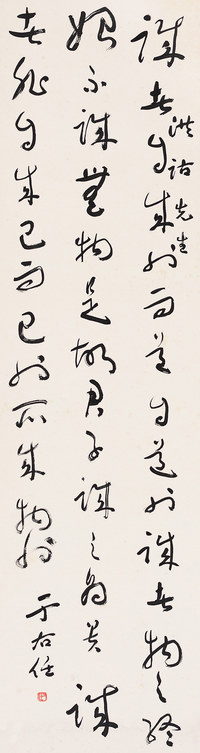 洪詁先生
誠者自成也而道自道也誠者物之終
始不誠無物是故君子誠之為貴誠
者非自成己而已也所以成物也
于右任